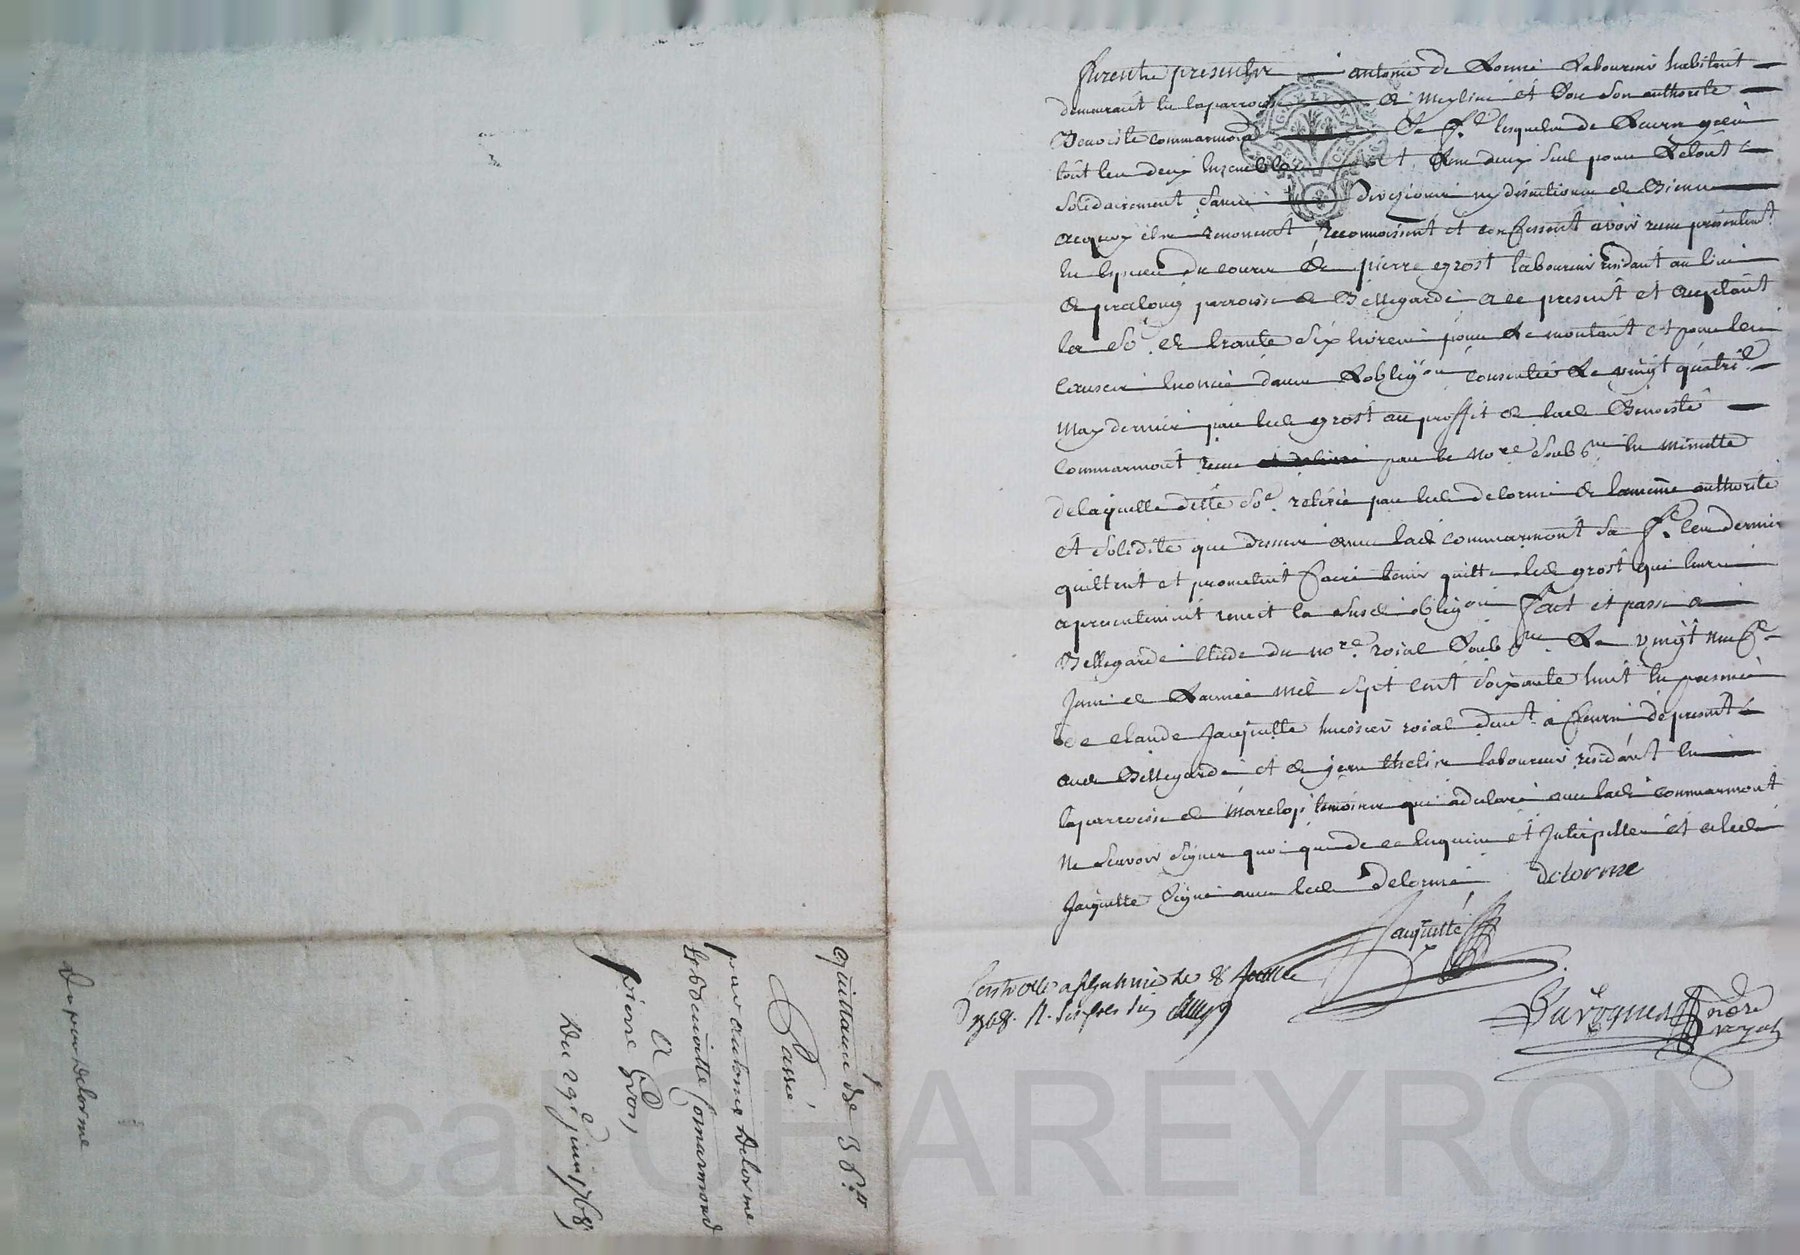 furent presents antoine de Lorme Laboureur habitant
demeurant en la parroisse de Meylieu et Sou son authorité
Benoiste commarmond Sa fe. lesquels de Leurs gré
tout les deux ensembles et L'un deux seul pour Le tout
Solidairement Sans divizions ny discutions de Biens
acquoy ils renoncent, reconnoissent et confessent avoir reçu présentement
en espèces du cours de pierre grost laboureur residant au lieu
de pralong parroisse de Bellegarde a ce present et acceptant
la so. de trante Six livres pour Le montant et pour les
causes énoncé dans L'obligon consentie Le vingt quatre
May dernier par led grost au proffit de lad Benoiste
Commarmont reçue par le nore Soubsne en minutte
de laquelle ditte So. retirée par led delorme de la même authorité
et solidité que dessus avec lad commarmont Sa fe. ces dernier
quittent et promettent faire tenir quitte led grost qui leurs
a presentement remit la susd obligon fait et passé a
Bellegarde Etude du nore roial Soubsne Le vingt neuf
Juin de L'année mil sept cent soixante huit en presence
de claude Jacquette huissier roial demt a feurs de present
aud Bellegarde et de jean thelis laboureur residant en
la parroisse de Marclop temoins qui a declaré avec lad commarmont
Ne Scavoir Signer quoi que de ce Enquis et Interpellés et led
Jaquette Signé avec led delorme delorme
Jacquette
Controllé a st galmier le 8 Juillet
1768. R.
nore royal
quittance de 36 ll
Passé
par antoine Delorme
et Benoitte Commarmond
A
pierre Gros,
Du 29e juin 1768,
Delorme
Pascal CHAREYRON